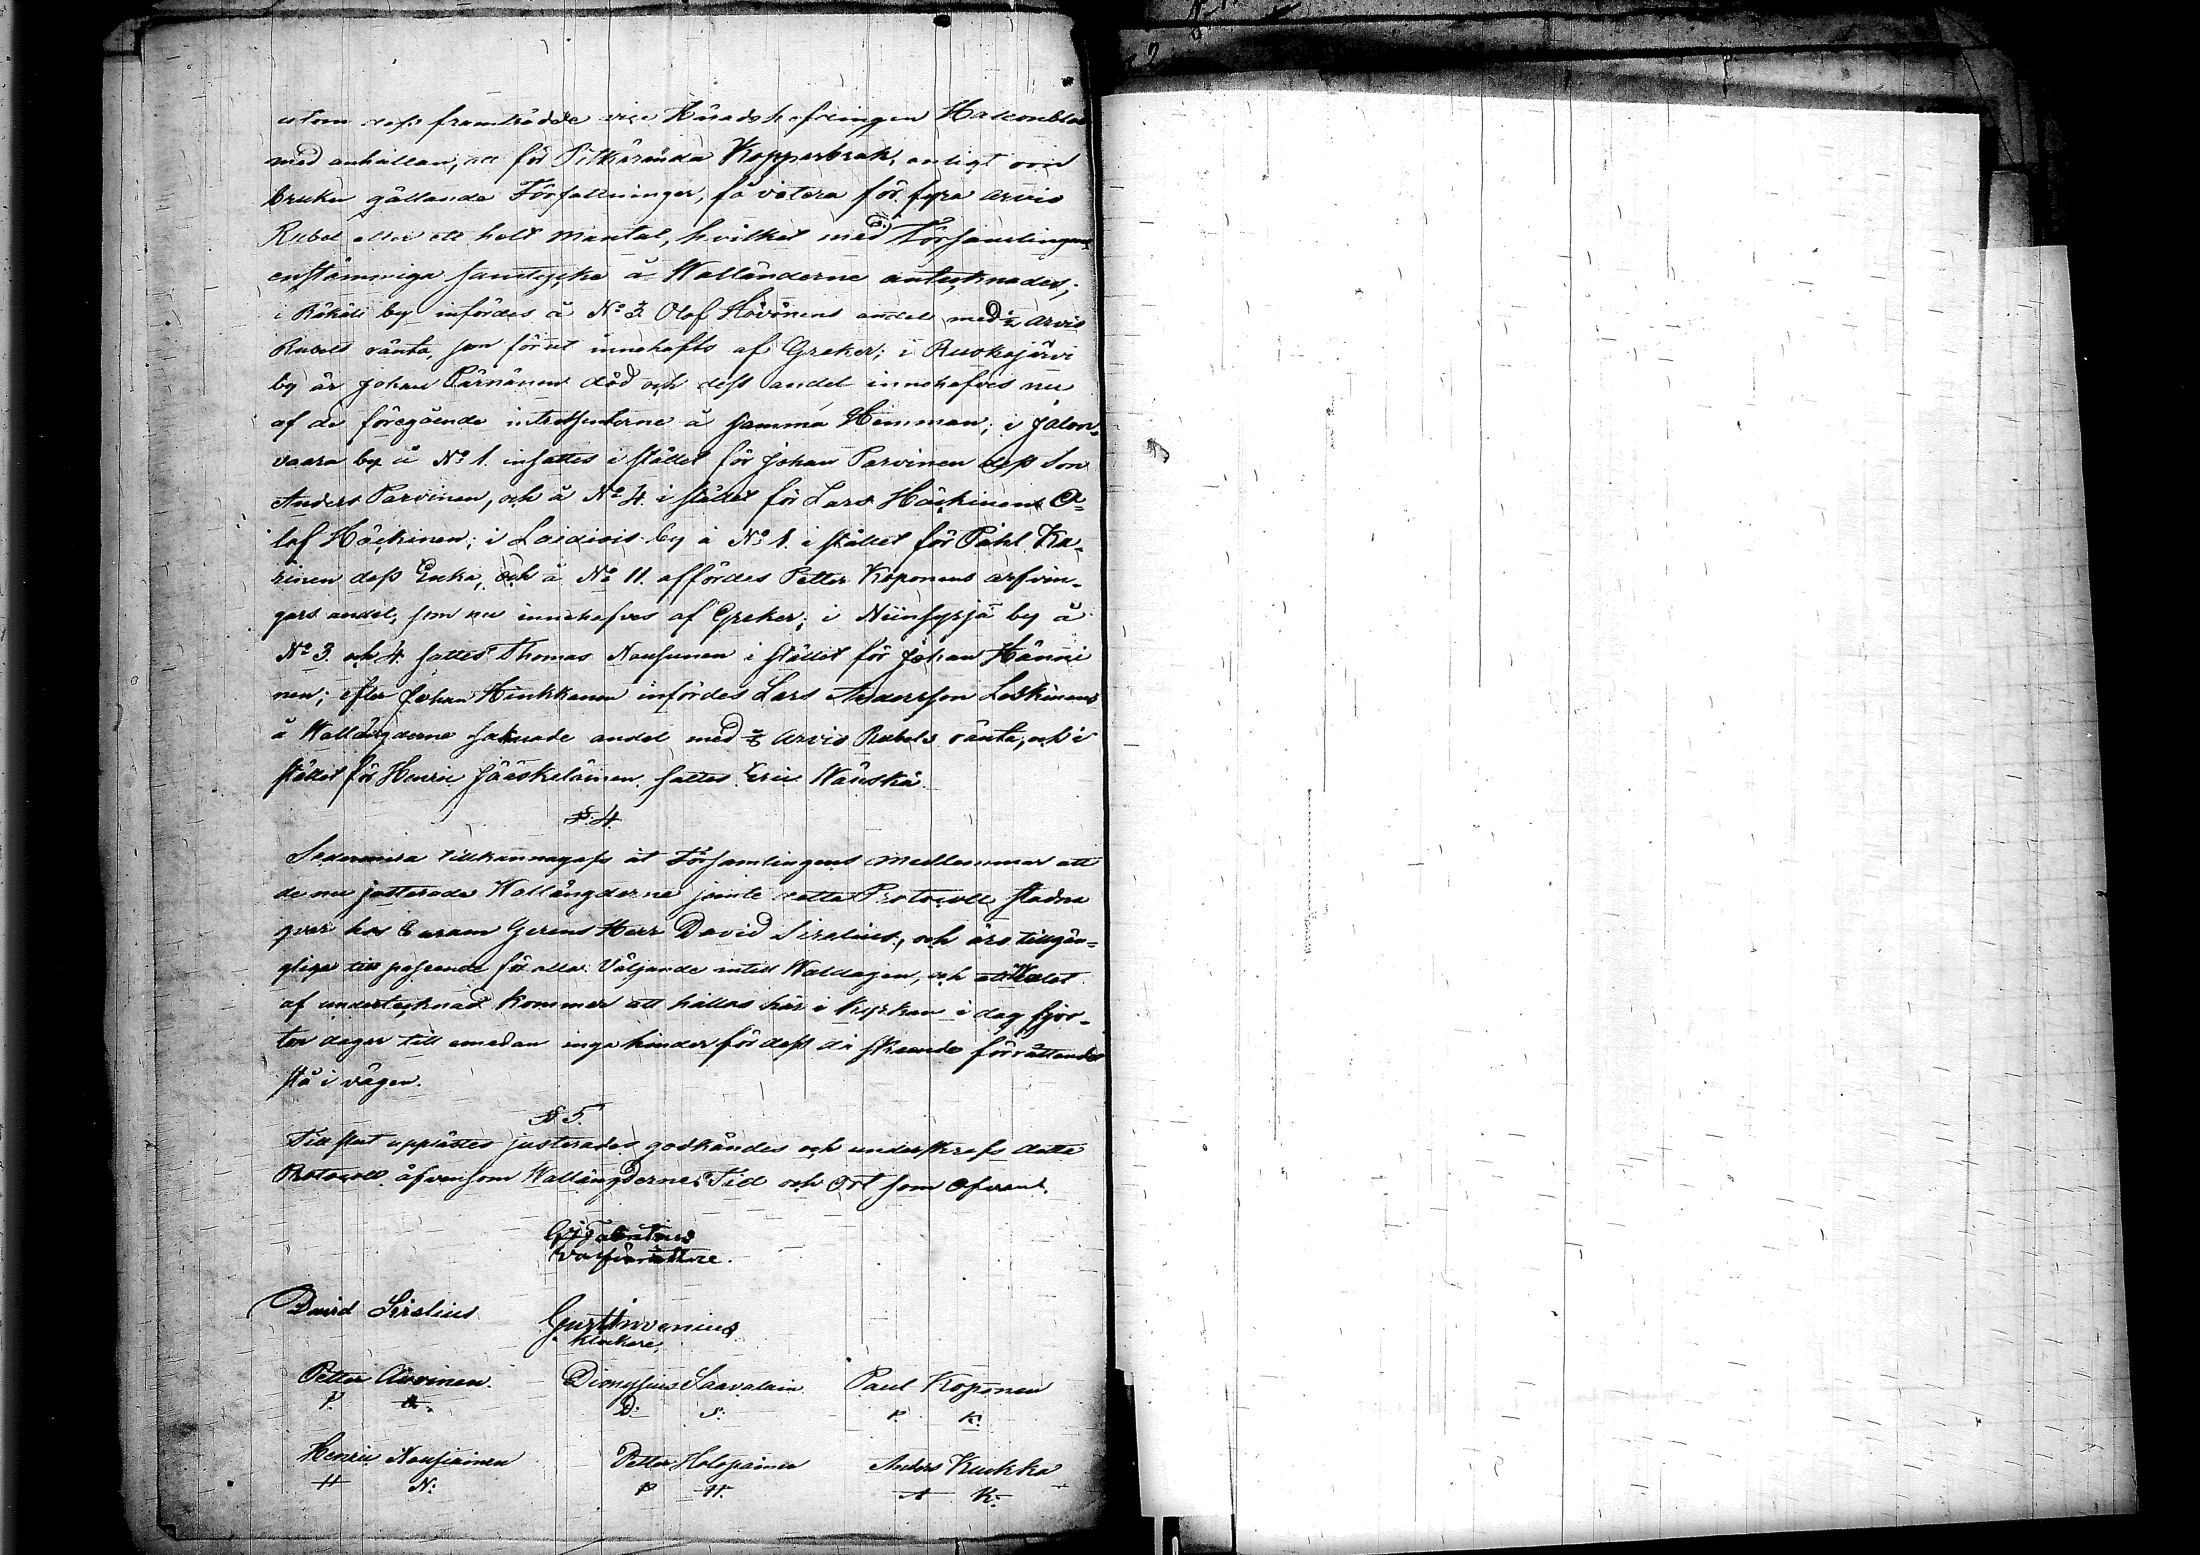 utom dess framträdde vice Häradshöfdingen Halconblad
med anhållan, att för Pitkäranda Kopparbruk, enligt om
bruken gällande Författninger, få votera för fyra arvio
Rubel eller ett helt mantal, hvilket med Församlingens
enstämmiga samtycke å Wallängderne antecknades;
i Räkäli by infördes å No 3. Olof Hövönens andel med ½ arvio
Rubels ränta, som förut innehafts af Greker; i Ruokojärvi
by är Johan Pärnänen död och dess andel innehafves nu
af de föregående intressenterne å samma Hemman; i Jalon-
vaara by å No 1. insattes i stället för Johan Parvinen dess Son
Anders Parvinen, och å No 4. i stället för Lars Häckinen O-
lof Häckinen; i Leidiois by å No 1. i stället för Påhl Ka-
rinen dess Enka, och å No 11. affördes Petter Koponens arfvin-
gars andel, som nu innehafves af Greker; i Niinsyrjä by å
No 3. och 4. sattes Thomas Nousunen i stället för Johan Hänni
nen; efter Johan Hinkkanen infördes Lars Andersson Leskinens
å Wallängderne saknade andel med arvio Rubels ränta, och i
stället för Henric Jääskeläinen sattes Eric Wänskä.
§. 4.
Sedermera tillkännagafs åt Församlingens medlemmar att
de nu justerade Wallängderne jemte detta Protocoll stadna
qvar hos Curam Gerens Herr David Sirelius, och äro tillgän-
gliga till påseende för alla Väljande intill Waldagen, och att Walet
af undertecknad kommer att hållas här i Kyrkan i dag fjor-
ton dagar till emedan inga hinder för dess då skeende förrättande
stå i vägen.
§ 5.
Till slut upplästes justerades godkändes och underskrefs detta
Protocoll äfvensom Wallängderne. Tid och Ort som ofvant.
Valförrättare.
David Sirelius Gust Hirvonius
Klockare
Petter Airvinen. Dionysius Saavalain Paul Koponen
P. A. D. S. P. K.
Henric Nousiainen Petter Holopainen Anders Kuokka
H N. P H. A K.